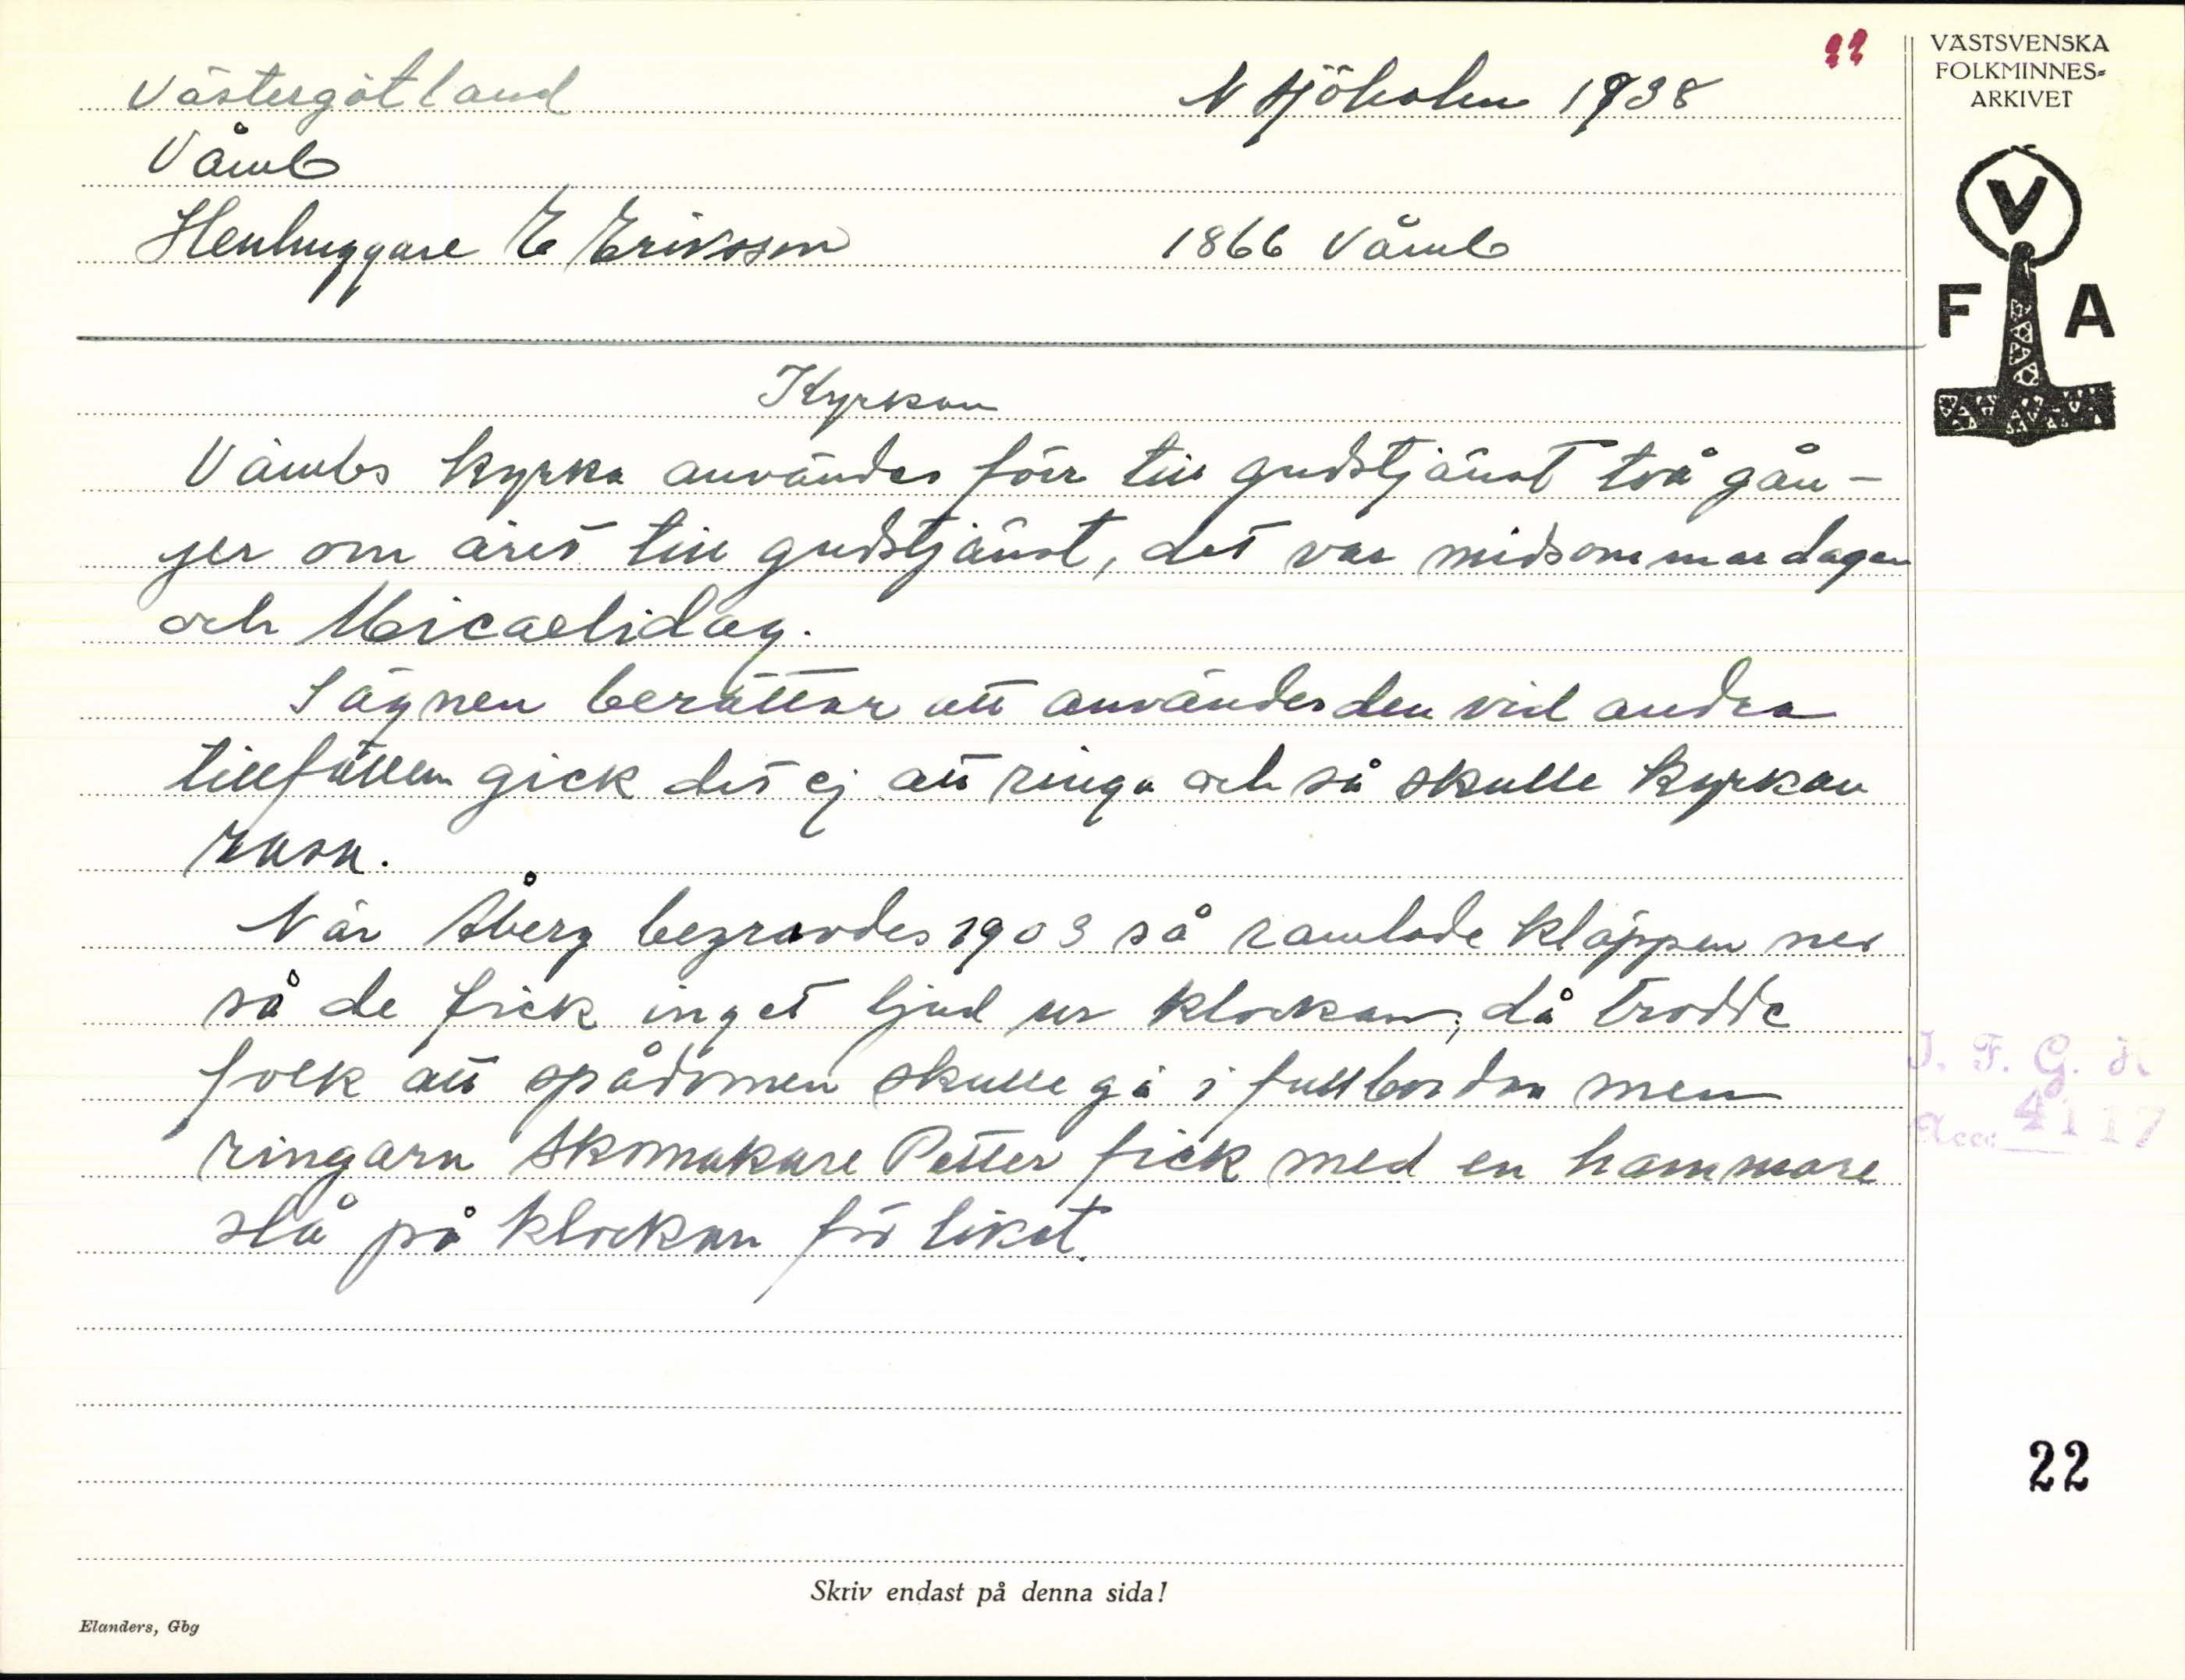 Västergötland N Sjöholm 1938 22
Våmb
Stenhuggare E Eriksson 1866 Våmb
Kyrkan
Våmbs kyrka användes förr till gudstjänst två gån-
ger om året till gudstjänst, det var midsommardagen
och Micaelidag.
Sägnen berättar att användes den vid andra
tillfällen gick det ej att ringa och så skulle kyrkan
rasa.
När Åberg begravdes 1903 så ramlade kläppen ner
så de fick inget ljud ur klockan, då trodde
folk att spådomen skulle gå i fullbordan men
ringarn Skomakare Petter fick med en hammare
slå på klockan för liket.
Skriv endast på denna sida!
Elanders, Gbg
VÄSTSVENSKA
FOLKMINNES=
ARKIVET
V
F A
I. F. G. H.
Acc. 4117
22